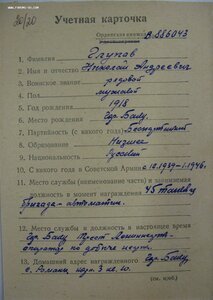 20/20
Учетная карточка
Орденская книжка В. 886043
1. Фамилия Глупов
2. Имя и отчество Николай Андреевич
3. Воинское звание рядовой
4. Пол мужской
5. Год рождения 1918
6. Место рождения гор. Баку
7. Партийность (с какого года) Беспартийный
8. Образование Низшее
9. Национальность Русский
10. С какого года в Советской Армии с 12.1939-1946.
11. Место службы (наименование части) и занимаемая
должность в момент награждения 45
бригада - автоматчик.
12. Место службы и должность в настоящее время
гор. Баку Трест
оператор по добыче нефти.
13. Домашний адрес награжденного гор. Баку,
с. Романы
(см. н/об.)